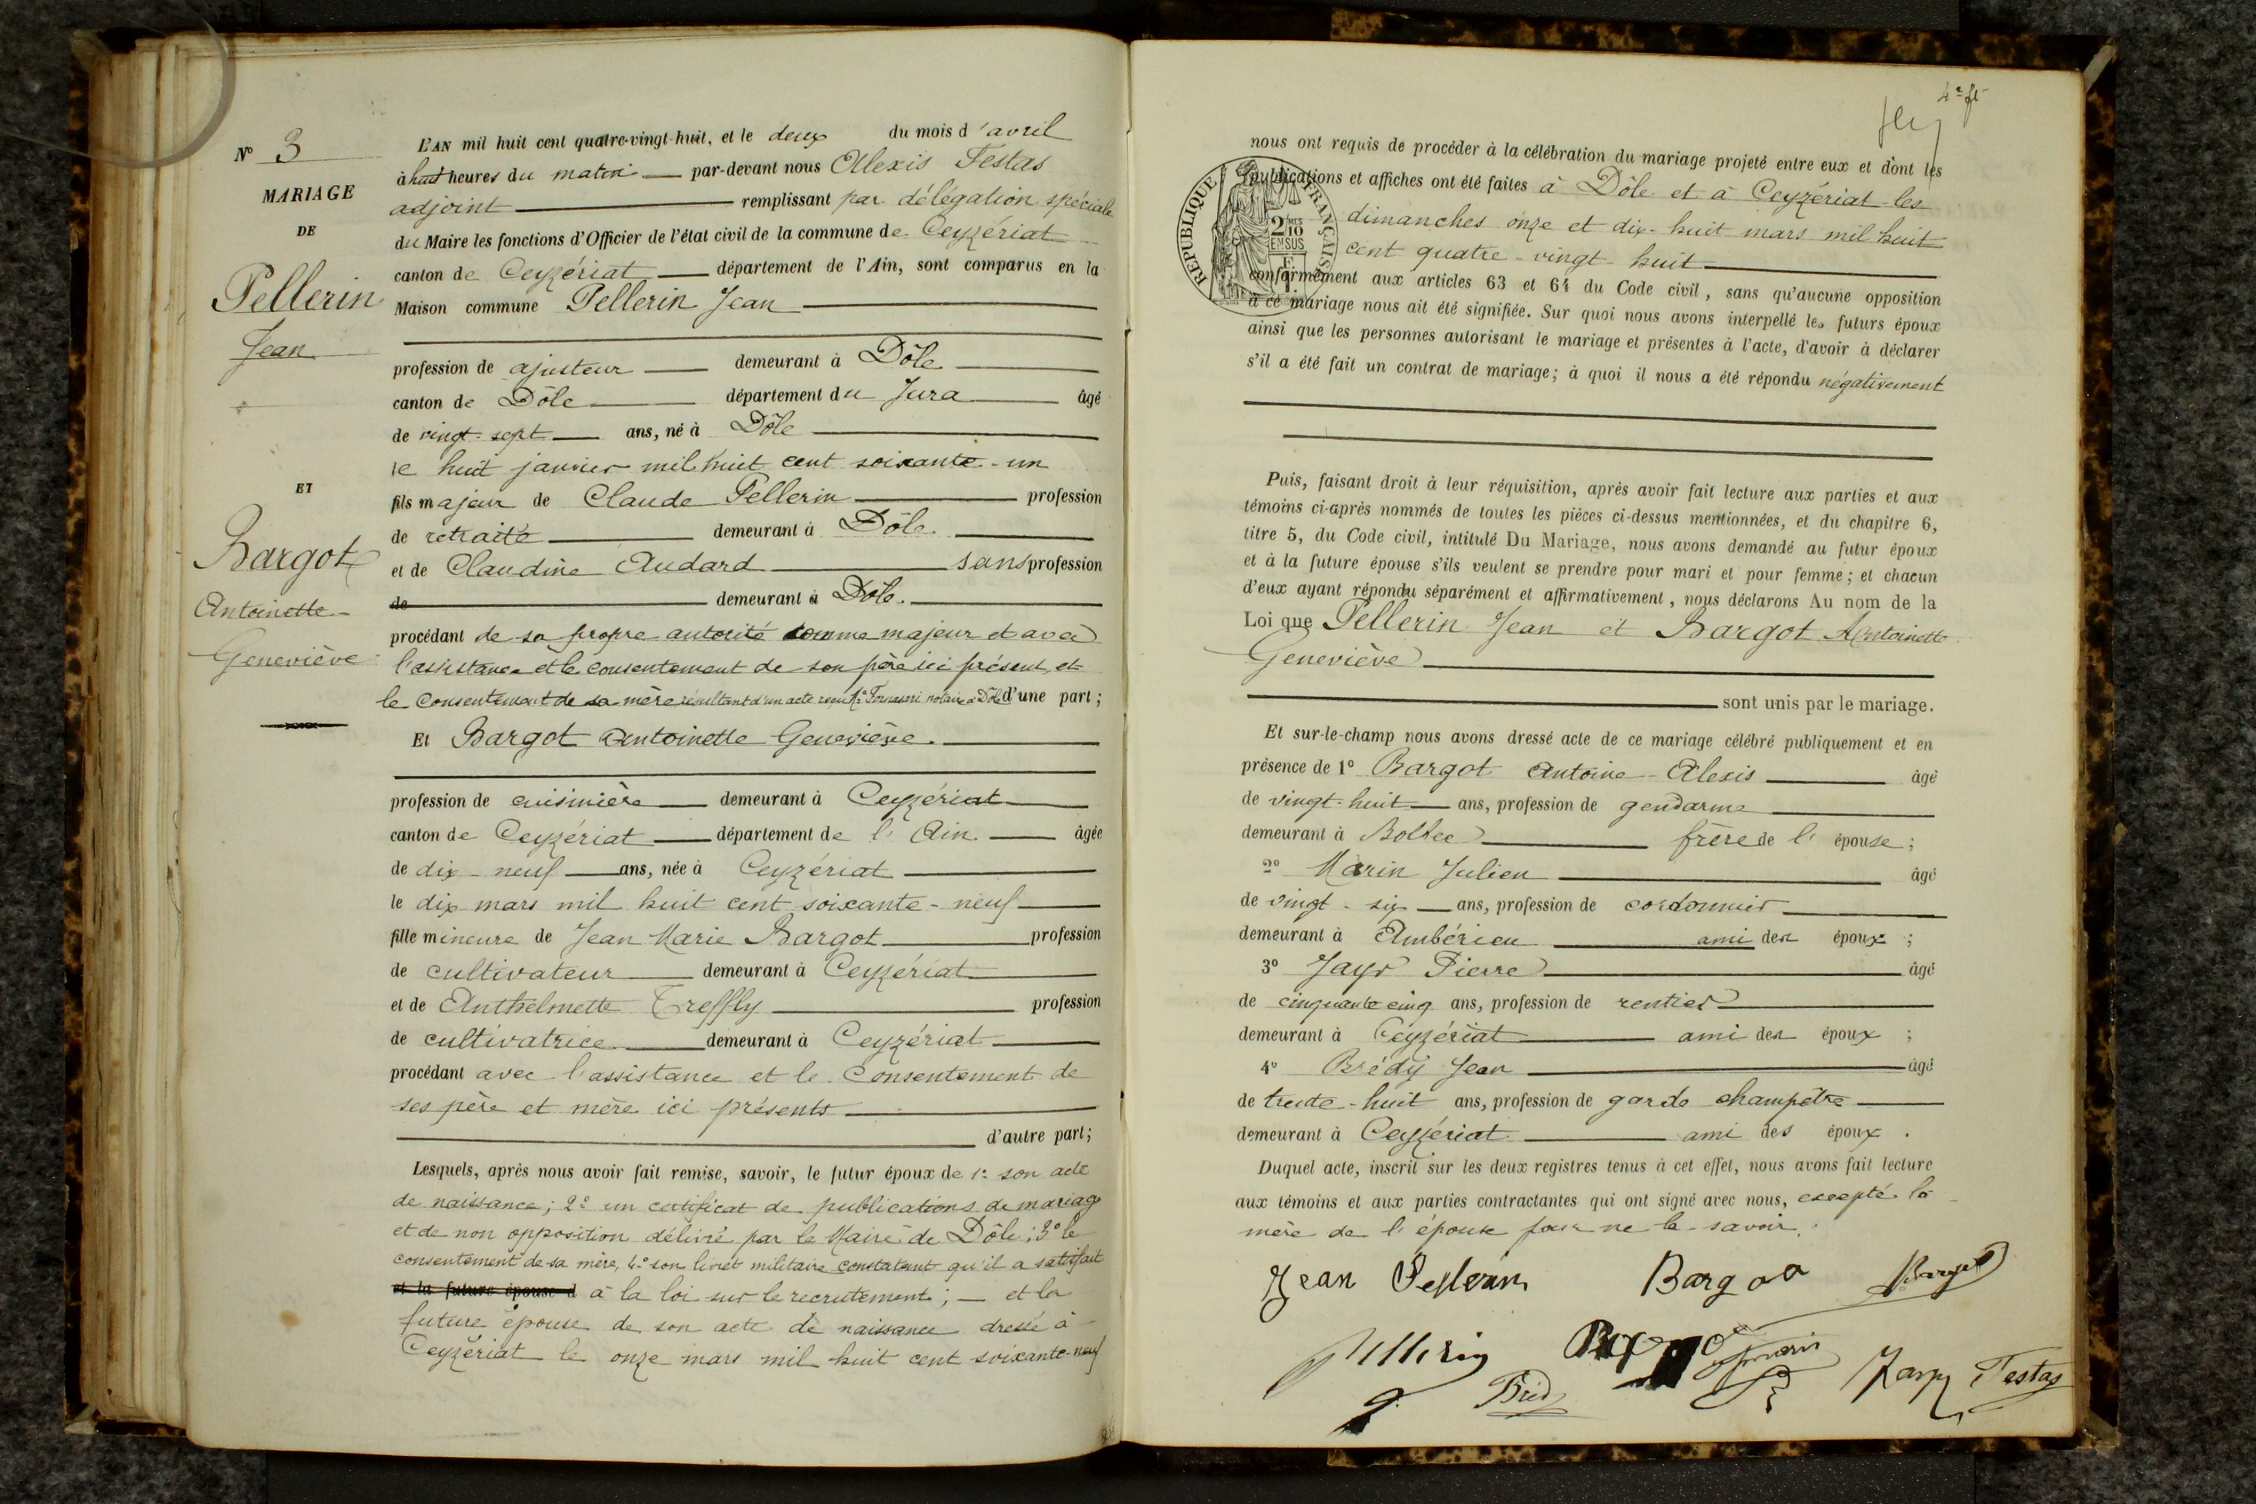 N° 3
MARIAGE
DE
Pellerin
Jean
ET
Bargot
Antoinette
Geneviève
L'AN mil huit cent quatre-vingt-huit, et le deux du mois d'avril
à huit heures du matin par-devant nous Alexis Testas
adjoint remplissant par délégation spéciale
du Maire les fonctions d'Officier de l'état civil de la commune de Ceyzériat
canton de Ceyzériat département de l'Ain, sont comparus en la
Maison commune Pellerin Jean
profession de ajusteur demeurant à Dôle
canton de Dôle département du Jura âgé
de vingt-sept ans, né à Dôle
le huit janvier mil huit cent soixante-un
fils majeur de Claude Pellerin profession
de retraité demeurant à Dôle
et de Claudine Audard sans profession
de demeurant à Dôle.
procédant de sa propre autorité comme majeur et avec
l'assistance et le consentement de son père ici présent, et
le consentement de sa mère résultant d'un acte reçu Me notaire à Dôle d'une part;
Et Bargot Antoinette Geneviève.
profession de cuisinière demeurant à Ceyzériat
canton de Ceyzériat département de l'Ain âgée
de dix-neuf ans, née à Ceyzériat
le dix mars mil huit cent soixante-neuf
fille mineure de Jean Marie Bargot profession
de cultivateur demeurant à Ceyzériat
et de Anthelmette Treffly profession
de cultivatrice demeurant à Ceyzériat
procédant avec l'assistance et le consentement de
ses père et mère ici présents
d'autre part;
Lesquels, après nous avoir fait remise, savoir, le futur époux de 1° son acte
de naissance; 2° un certificat de publications de mariage
et de non opposition délivré par le Maire de Dôle; 3° le
consentement de sa mère, 4° son livret militaire constatant qu'il a satisfait
et la future épouse d à la loi sur le recrutement; — et la
future épouse de son acte de naissance dressé à
Ceyzériat le onze mars mil huit cent soixante-neuf
4e ft
nous ont requis de procéder à la célébration du mariage projeté entre eux et dont les
publications et affiches ont été faites à Dôle et à Ceyzériat les
dimanches onze et dix-huit mars mil huit
cent quatre-vingt-huit
RÉPUBLIQUE FRANÇAISE
2/10
EN SUS
conformément aux articles 63 et 64 du Code civil, sans qu'aucune opposition
à ce mariage nous ait été signifiée. Sur quoi nous avons interpellé les futurs époux
ainsi que les personnes autorisant le mariage et présentes à l'acte, d'avoir à déclarer
s'il a été fait un contrat de mariage; à quoi il nous a été répondu négativement
Puis, faisant droit à leur réquisition, après avoir fait lecture aux parties et aux
témoins ci-après nommés de toutes les pièces ci-dessus mentionnées, et du chapitre 6,
titre 5, du Code civil, intitulé Du Mariage, nous avons demandé au futur époux
et à la future épouse s'ils veulent se prendre pour mari et pour femme; et chacun
d'eux ayant répondu séparément et affirmativement, nous déclarons Au nom de la
Loi que Pellerin Jean et Bargot Antoinette
Geneviève
sont unis par le mariage.
Et sur-le-champ nous avons dressé acte de ce mariage célébré publiquement et en
présence de 1° Bargot Antoine-Alexis âgé
de vingt-huit ans, profession de gendarme
demeurant à Bolbec frère de l'épouse;
2° Marin Julien âgé
de vingt-six ans, profession de cordonnier
demeurant à Ambérieu ami des époux;
3° Jayr Pierre âgé
de cinquante cinq ans, profession de rentier
demeurant à Ceyzériat ami des époux;
4° Brédy Jean âgé
de trente-huit ans, profession de garde champêtre
demeurant à Ceyzériat ami des époux.
Duquel acte, inscrit sur les deux registres tenus à cet effet, nous avons fait lecture
aux témoins et aux parties contractantes qui ont signé avec nous, excepté la
mère de l'épouse pour ne le savoir.
Jean Pellerin Bargot Bargot
Pellerin Marin
Bredy Jayr Testas